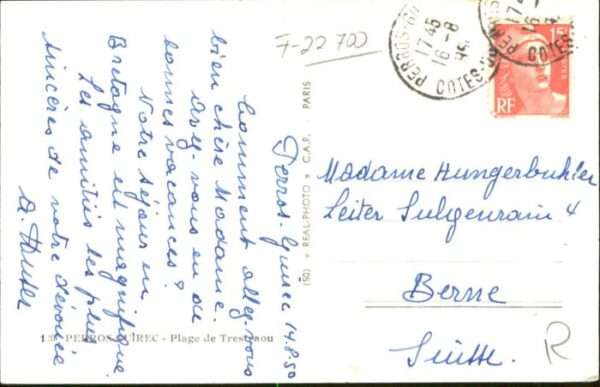 F-22700
Perros-Guirec 14.8.50
Comment allez-vous
bien chère Madame.
Avez-vous eu de
bonnes vacances?
Notre séjour en
Bretagne est magnifique
Les amitiés les plus
sincères de votre dévouée
PERROS-GUIREC - Plage de Trestraou
(50) • REAL-PHOTO • C.A.P. PARIS
PERROS-GUI
17 45
16 -8
COTES-DU
PERROS
17
16
COTES
15F
RF
Madame Hungerbuhler
Leiter Sulgenrain 4
Berne
Suisse.
R